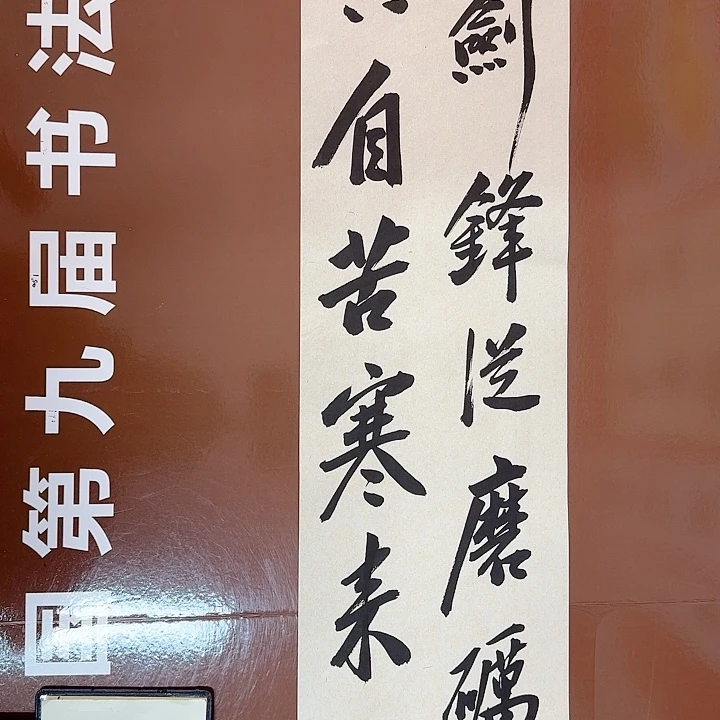 劍鋒從磨礪
自苦寒来
国第九届书法